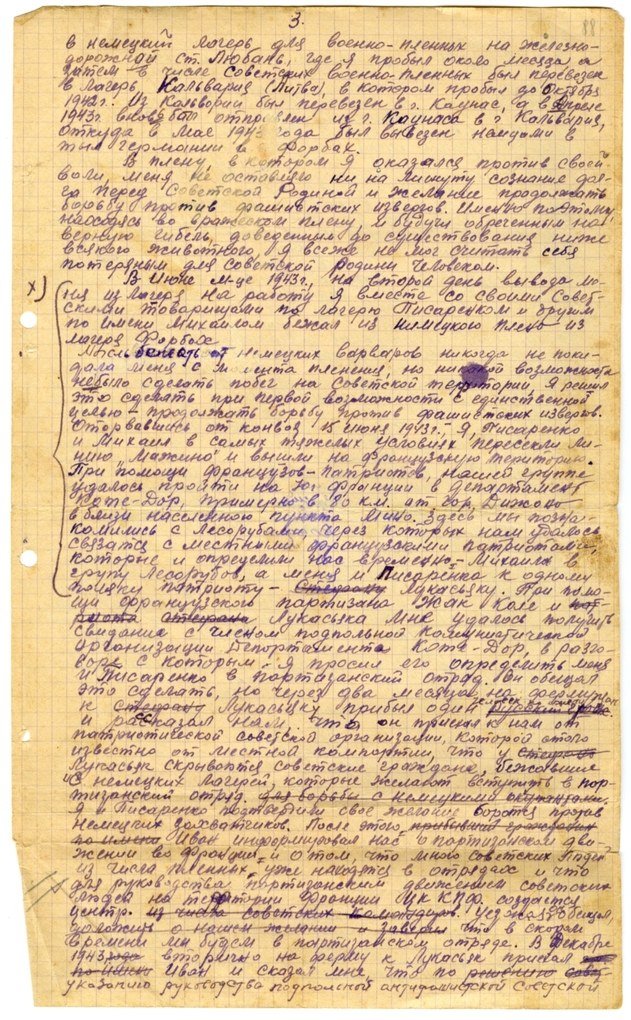 3.
88
в немецкий лагерь для военно-пленных на железно-
дорожной ст. Любань, где я пробыл около месяца а
затем в числе Советских военно-пленных был перевезен
в лагерь Кальвария (Литва), в котором пробыл до Октября
1942г. Из Кальварии был перевезен в г. Каунас, а в Апреле
1943г. вновь был отправлен из г. Каунаса в г. Кальвария,
откуда в Мае 1943 года был вывезен немцами в
тыл германии в Форбах.
В плену, в котором я оказался против своей
воли, меня не оставляло ни на минуту сознание дол-
га перед Советской Родиной и желание продолжать
борьбу против фашистских извергов. Именно поэтому,
находясь во вражеском плену, и будучи обреченным на
верную гибель, доведенным до существования ниже
всякого животного, я все же не мог считать себя
потеряным для Советской родины человеком.
х) В Июне м-це 1943г., на второй день вывода ме-
ня из лагеря на работу я вместе со своими Совет-
скими товарищами по лагерю Писаренком и другим
по имени Михаилом бежал из немецкого плена из
лагеря Форбах.
Мысль бежать от немецких варваров никогда не поки-
дала меня с момента пленения, но никакой возможности
небыло сделать побег на Советской территории. Я решил
это сделать при первой возможности с единственной
целью - продолжать борьбу против фашистских извергов.
Оторвавшись от конвоя 15 июня 1943г. - Я, Писаренко
и Михаил в самых тяжелых условиях пересекли ли-
нию "Мажино" и вышли на французскую територию.
При помощи французов-патриотов, нашей группе
удалось пройти на Юг франции в департамент
Коте-Дор, примерно в 80 км. от гор. Дижона
вблизи населенного пункта Мино. Здесь мы позна-
комились с лесорубами, через которых нам удалось
связатся с местными французскими патриотами,
которые и определили нас временно - Михаила в
групу лесорубов, а меня и Писаренка к одному
поляку патриоту - Лукасьяку. При помо-
щи французского партизана Жак Коле и
Лукасьяка мне удалось получить
свидание с членом подпольной Комунистической
организации Департамента Коте-Дор, в разго-
воре с которым я просил его определить меня
и Писаренко в партизанский отряд. Он обещал
это сделать, но через два месяца на ферму
к Лукасьяку прибыл один
и рассказал нам, что он приехал к нам от
патриотической советской организации, которой стало
известно от местной компартии, что у
Лукасьяк скрываются советские граждане, бежавшие
из немецких лагерей, которые желают вступить в пар-
тизанский отряд. для борьбы с немецкими окупантами.
Я и Писаренко подтвердили свое желание боротся против
немецких захватчиков. После этого прибывший гражданин
по имени Иван информировал нас о партизанском дви-
жении во Франции и о том, что много советских людей
из числа пленных уже находятся в отрядах и что
для руководства партизанским движением советских
людей на територии франции ЦК КПФ. создается
центр. из числа советских командиров. Уезжая обещал,
доложить о нашем желании и заверил что в скором
времени мы будем в партизанском отряде. В Декабре
1943 года вторично на ферму к Лукасьяк приехал
по имени Иван и сказал мне, что по решению
указанию руководства подпольной антифашистской советской